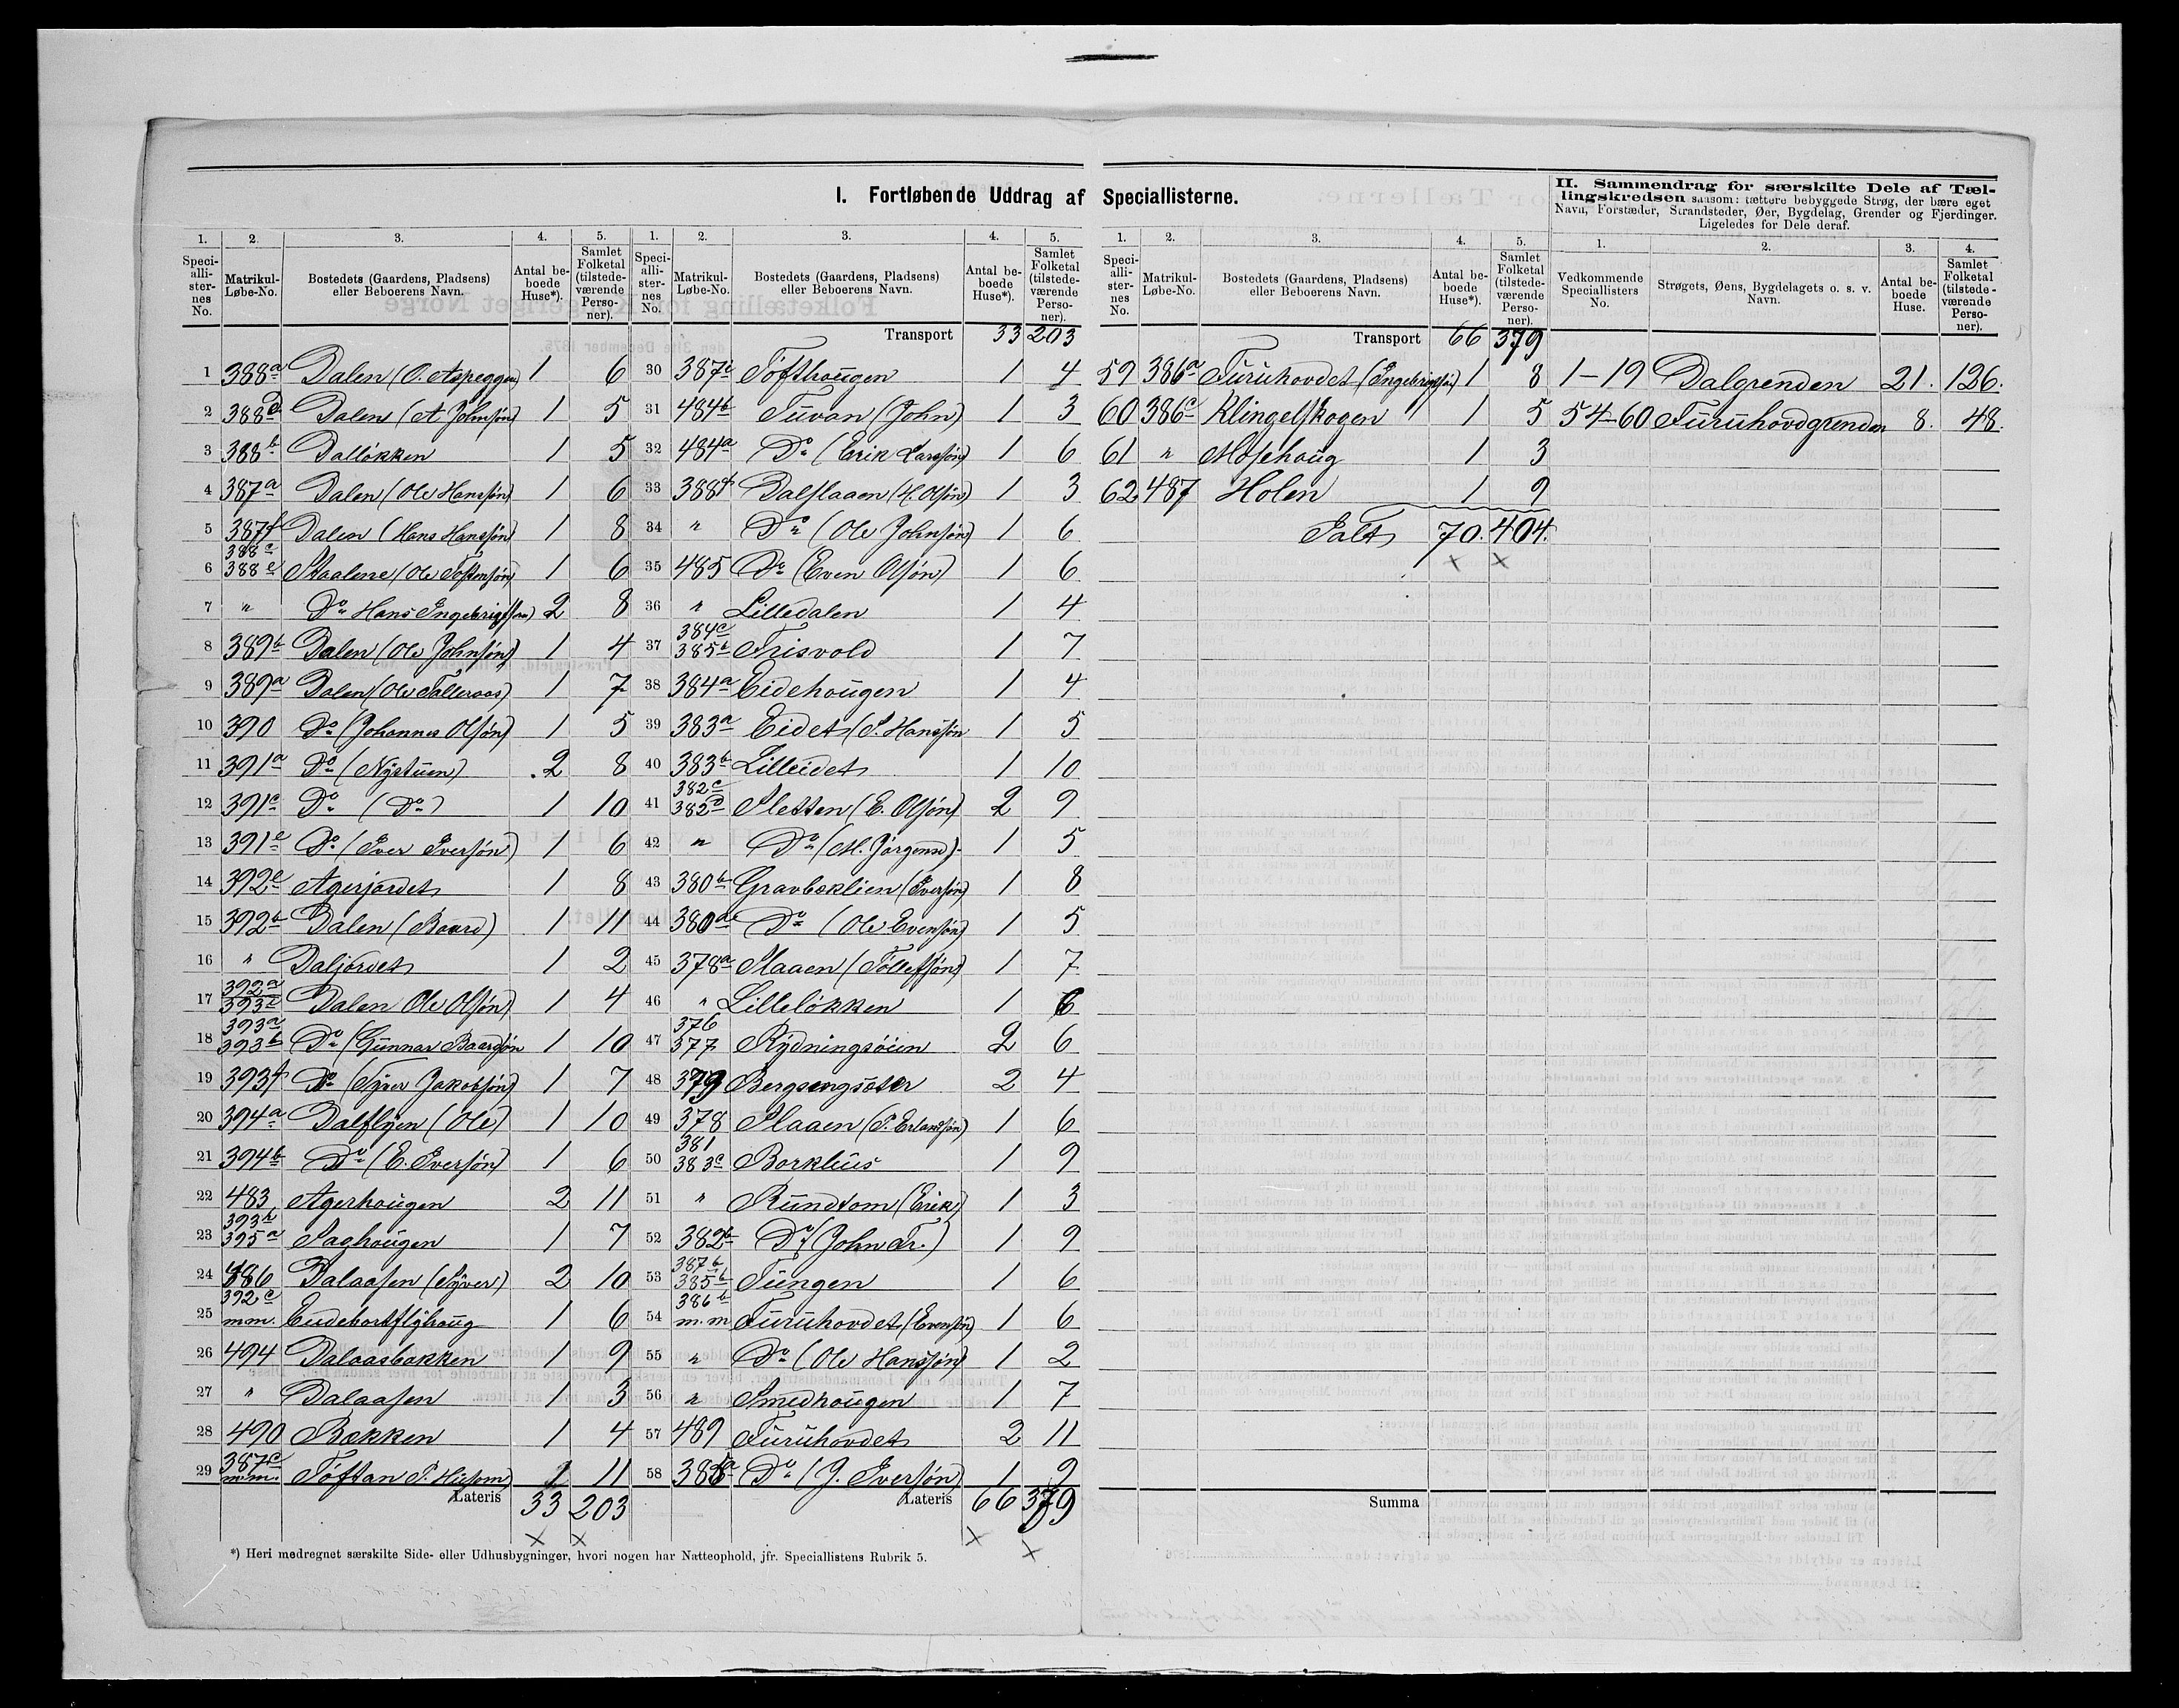 I. Fortløbende Uddrag af Speciallisterne.
II. Sammendrag for særskilte Dele af Tæl-
lingskredsen saasom: tættere bebyggede Strøg, der bære eget
Navn, Forstæder, Strandsteder, Øer, Bygdelag, Grender og Fjerdinger.
Ligeledes for Dele deraf.
1. 2. 3. 4. 5.
Speci-alli-ster-nes No. Matrikul-Løbe-No. Bostedets (Gaardens, Pladsens) eller Beboerens Navn. Antal be-boede Huse*). Samlet Folketal (tilstede-værende Perso-ner).
1 388a Dalen (O. Aspeggen) 1 6
2 388d Dalen (A Johnsøn) 1 5
3 388b Dalløkken 1 5
4 387a Dalen (Ole Hanssøn) 1 6
5 387f Dalen (Hans Hanssøn) 1 8
6 388c 388e Staalene (Ole Toftensøn) 1 6
7 " Do Hans Engebrigtson) 2 8
8 389b Dalen (Ole Johnsøn) 1 4
9 389a Dalen (Ole Talleraas) 1 7
10 390 Do (Johannes Olsøn) 1 5
11 391a Do (Nystuen) 2 8
12 391c Do (Do) 1 10
13 391e Do (Iver Iversøn) 1 6
14 392c Agerjordet 1 8
15 392b Dalen (Baard) 1 11
16 " Daljordet 1 2
17 392a 393c Dalen Ole Olsøn) 1 4
18 393a 393b Do (Gunnar Baardsøn 1 10
19 393f Do (Syver Jakobsøn) 1 7
20 394a Dalflyen (Ole) 1 10
21 394b Do (E. Iversøn) 1 6
22 483 Agerhougen 2 11
23 393h 395a Saghougen 1 7
24 486 Dalaasen (Syver) 2 10
25 392c m.m. Endebortflyhoug 1 6
26 494 Dalaasbakken 1 9
27 " Dalaasen 1 3
28 490 Bækken 1 4
29 387c m.m. Tøftan P. Husom) 1 11
Lateris 33 203
1. 2. 3. 4. 5.
Speci-alli-ster-nes No. Matrikul-Løbe-No. Bostedets (Gaardens, Pladsens) eller Beboerens Navn. Antal be-boede Huse*). Samlet Folketal (tilstede-værende Perso-ner).
Transport 33 203
30 387e Tøfthougen 1 4
31 484b Tuvan (John) 1 3
32 484a Do (Erik Larssøn) 1 6
33 388f Dalslaaen (H. Olsøn) 1 3
34 " Do (Ole Johnsøn) 1 6
35 485 Do (Even Olsøn) 1 6
36 " Lilledalen 1 4
37 384c 385b Trisvold 1 7
38 384a Eidehougen 1 4
39 383a Eidet (P. Hanssøn 1 5
40 383b Lilleidet 1 10
41 382c 382d Sletten (E. Olsøn) 2 9
42 " Do (M. Jørgens.) 1 5
43 380b Gravbæklien (Iversøn) 1 8
44 380a Do (Ole Evensøn) 1 5
45 378a Slaaen (Tollefsøn) 1 7
46 " Lilleløkken 1 6
47 376 377 Rydningsøien 2 6
48 379 Bergsengsæter 2 4
49 378 Slaaen (P. Erlandsøn) 1 6
50 381 383c Borkhus 1 9
51 " Rundtom (Erik) 1 3
52 382b Do (John Tr.) 1 9
53 387b 385b Tungen 1 6
54 386b m.m Furuhovdet (Evensøn) 1 6
55 " Do (Ole Hanssøn) 1 2
56 " Smedhougen 1 7
57 489 Furuhovdet 2 11
58 385a Do (J. Iversøn) 1 9
Lateris 66 379
1. 2. 3. 4. 5.
Speci-alli-ster-nes No. Matrikul-Løbe-No. Bostedets (Gaardens, Pladsens) eller Beboerens Navn. Antal be-boede Huse*). Samlet Folketal (tilstede-værende Perso-ner).
Transport 66 379
59 386a Furuhovdet (Engebrigtsøn) 1 8
60 386c Klingelskogen 1 5
61 " Mosehoug 1 3
62 487 Holen 1 9
Ialt 70. 404.
Summa
1. 2. 3. 4.
Vedkommende Speciallisters No. Strøgets, Øens, Bygdelagets o. s. v. Navn. Antal be-boede Huse. Samlet Folketal (tilstede-værende Perso-ner).
1-19 Dalgrenden 21. 126.
54-60 Furuhovdgrenden 8. 48.
*) Heri medregnet særskilte Side- eller Udhusbygninger, hvori nogen har Natteophold, jfr. Speciallistens Rubrik 5.